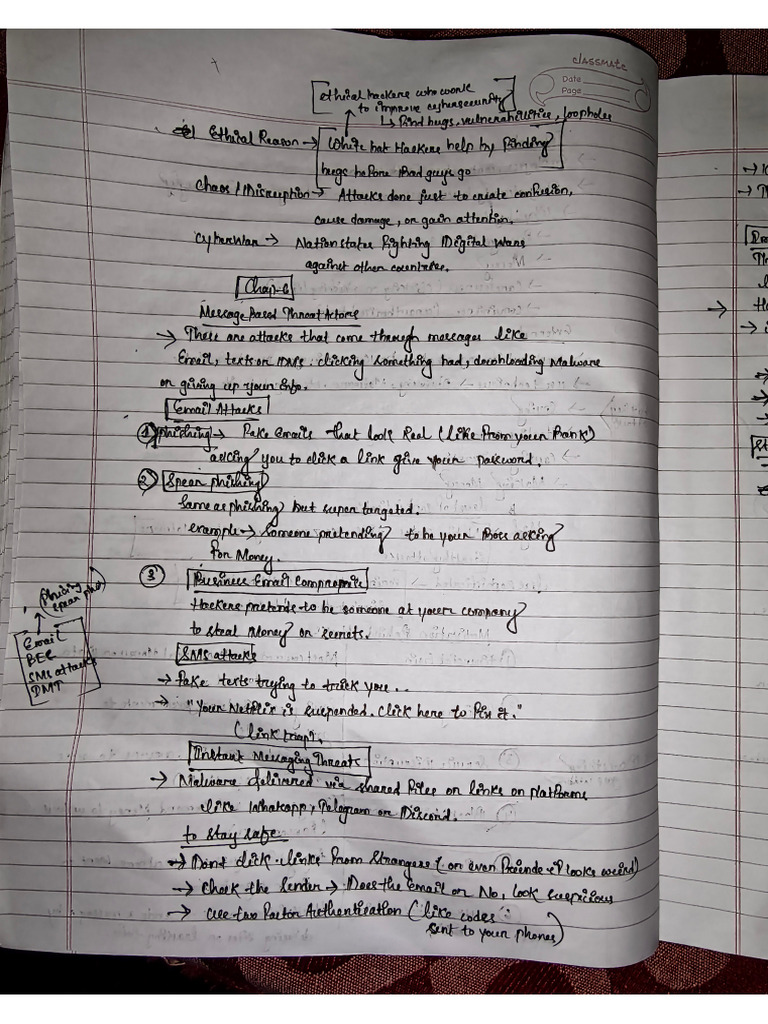 classmate
Date
Page
Ethical hackers who work
to improve cybersecurity
↳ Find bugs, vulnerabilities, loopholes
Ethical Reason → White hat Hackers help by Finding
bugs before Bad guys go
Chaos / Disruption → Attacks done just to create confusion,
cause damage, or gain attention.
Cyber War → Nation states Fighting Digital Wars
against other countries.
Chap-6
Message Based Threat Actors
→ These are attacks that come through messages like
Email, texts or DMs. clicking something bad, downloading Malware
or giving up your info.
Email Attacks
① Phishing → Fake Emails that look Real (like From your Bank)
asking you to click a link give your password.
② Spear phishing
Same as phishing but super targeted.
example → Someone pretending to be your Boss asking
For Money.
③ Business Email Compromise
Hackers pretends to be someone at your company
to steal Money or secrets.
Phising
spear
Email
BEC
SMS attacks
DMT
SMS attacks
→ Fake texts trying to trick you..
→ "Your Netflix is suspended. Click here to Fix it."
(link trap).
Instant Messaging Threats
→ Malware delivered via shared Files or links on platforms
like Whatsapp, Telegram or Discord.
to stay safe
→ Dont click links From Strangers (or even Friends if looks weird)
→ Check the sender → Does the Email or No, look suspicious
→ use two Factor Authentication (like codes
sent to your phones)